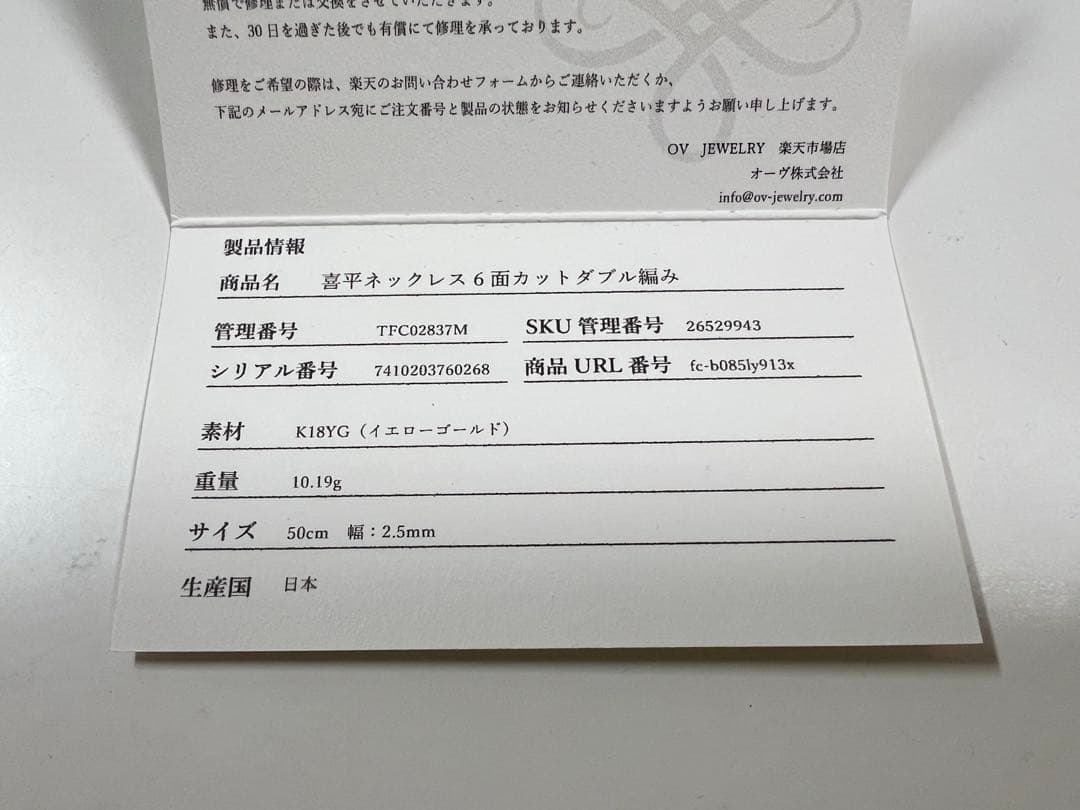 無償で修理または交換をさせていただきます。
また、30日を過ぎた後でも有償にて修理を承っております。
修理をご希望の際は、楽天のお問い合わせフォームからご連絡いただくか、
下記のメールアドレス宛にご注文番号と製品の状態をお知らせくださいますようお願い申し上げます。
OV JEWELRY 楽天市場店
オーヴ株式会社
info@ov-jewelry.com
製品情報
商品名 喜平ネックレス6面カットダブル編み
管理番号 TFC02837M SKU管理番号 26529943
シリアル番号 7410203760268 商品URL番号 fc-b085ly913x
素材 K18YG（イエローゴールド）
重量 10.19g
サイズ 50cm 幅：2.5mm
生産国 日本